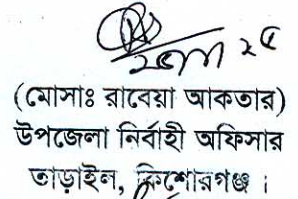 (মোসাঃ রাবেয়া আকতার)
উপজেলা নির্বাহী অফিসার
তাড়াইল, কিশোরগঞ্জ।